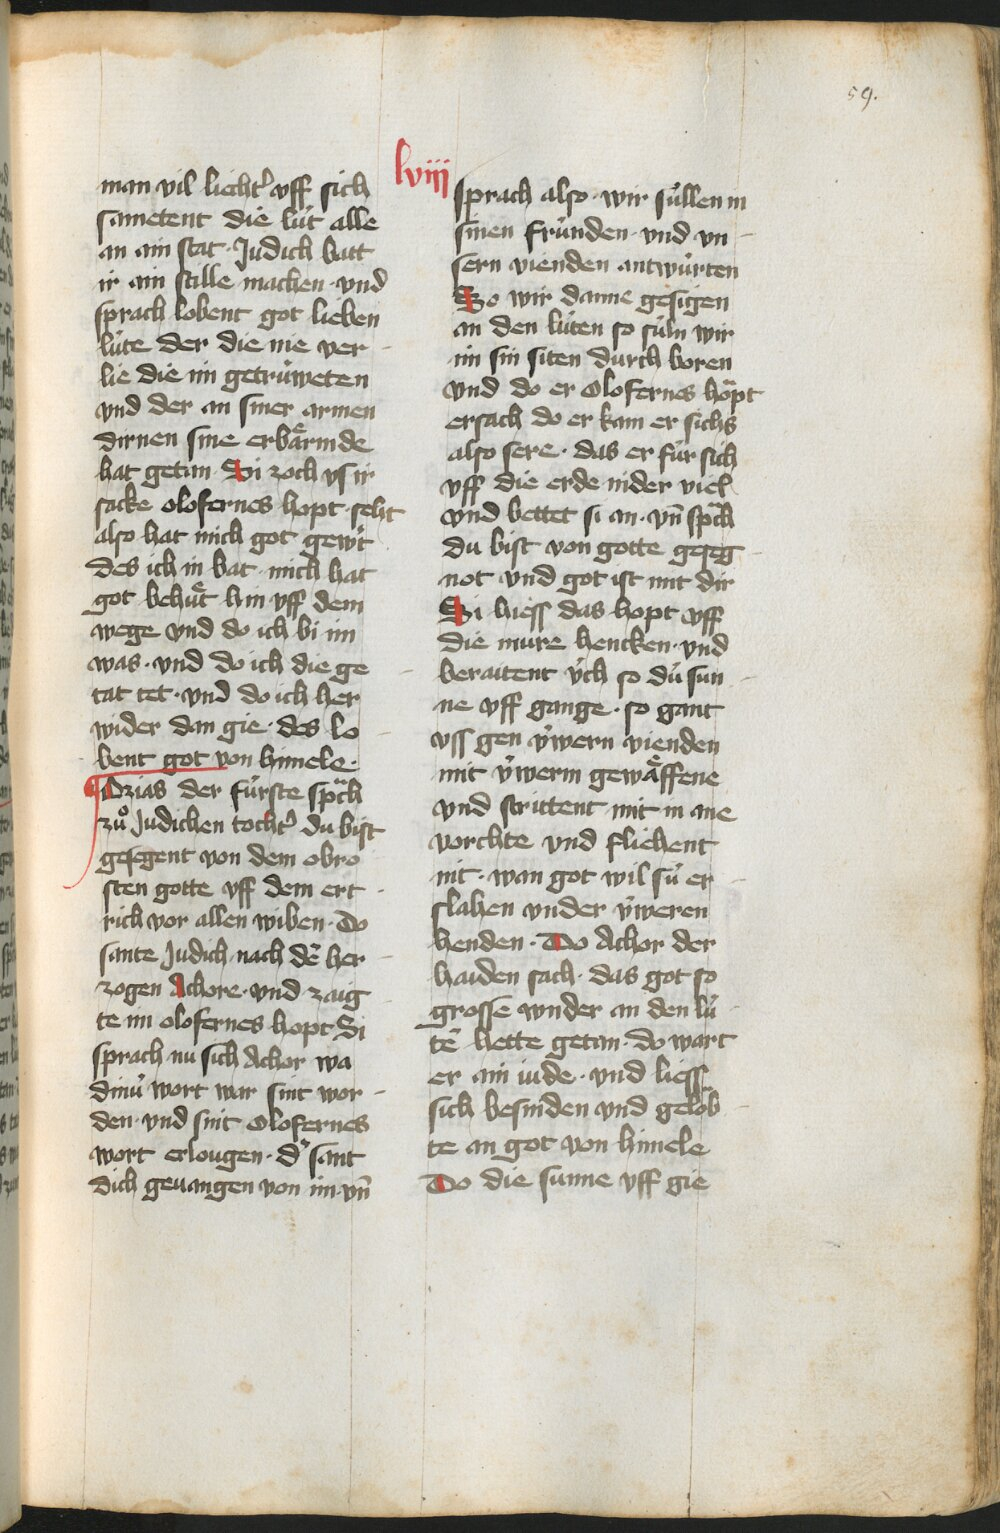 59.
lviii
man vil liechtˀ vff sich
sametent die lüt alle
an ain stat · Judich batt
ir ain stille machen · vnd
sprach lobent got lieben
lüte der die nie ver-
lie die im getrüweten
vnd der an siner armen
dirnen sine erbärmde
hat getan · Si zoch vs ir
sacke olofernes hopt · seht
also hat mich got gewˀt
des ich in bat · mich hat
got behüt hin vff dem
wege vnd do ich bi im
was · vnd do ich die ge-
tat tet · vnd do ich her
wider dan gie · des lo-
bent got von himele ·
Ozias der fürste spͣch
zuͦ Judichen tochtˀ du bist
gesegent von dem obro-
sten gotte vff dem ert-
rich vor allen wiben · Do
sante Judich nach dē her-
zogen Achore · vnd zaig-
te im olofernes hopt Si
sprach nu sich Achor wa
dinü wort war sint wor-
den · vnd sint olofernes
wort erlougen · dˀ sant
dich geuangen von im · vn̄
sprach also · wir süllen in
sinen fründen · vnd vn-
sern vienden antwürten
So wir danne gesigen
an den lüten so süln wir
im sin siten durch boren
vnd do er olofernes höpt
ersach do er kam er sichs
also sere · das er für sich
vff die erde nider viel
vnd bettet si an · vn̄ spͣch
du bist von gotte geseg-
not vnd got ist mit dir
Si hiess das hopt vff
die mure hencken · vnd
beraitent üch so dü sun-
ne vff gange · so gant
vss gen üwern vienden
mit üwerm gewäffene
vnd strittent mit in ane
vorchte vnd fliehent
nit · wan got wil sü er-
slahen vnder üweren
henden · Do Achor der
haiden sach · das got so
grosse wnder an den lü-
tē hette getan · do wart
er ain iude · vnd liess
sich besniden vnd gelob-
te an got von himele
Do die sunne vff gie